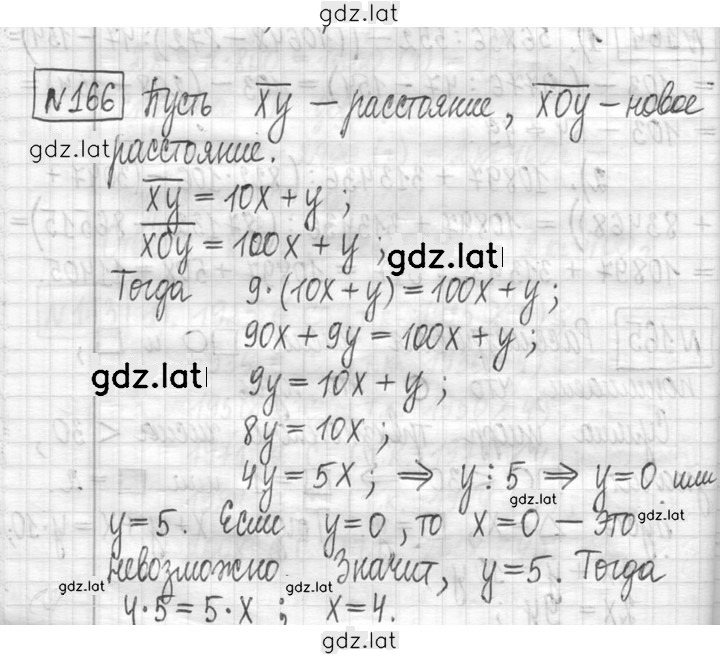 gdz.lat
№166 Пусть x̅y̅ — расстояние, x̅0̅y̅ — новое
gdz.lat расстояние.
x̅y̅ = 10x + y ;
x̅0̅y̅ = 100x + y ; gdz.lat
Тогда 9·(10x + y) = 100x + y ;
90x + 9y = 100x + y ;
gdz.lat 9y = 10x + y ;
8y = 10x ;
4y = 5x ; ⇒ y ⋮ 5 ⇒ y = 0 или
gdz.lat
y = 5. Если y = 0, то x = 0 — это gdz.lat
невозможно. Значит, y = 5. Тогда
gdz.lat gdz.lat gdz.lat
4·5 = 5·x ; x = 4.
gdz.lat